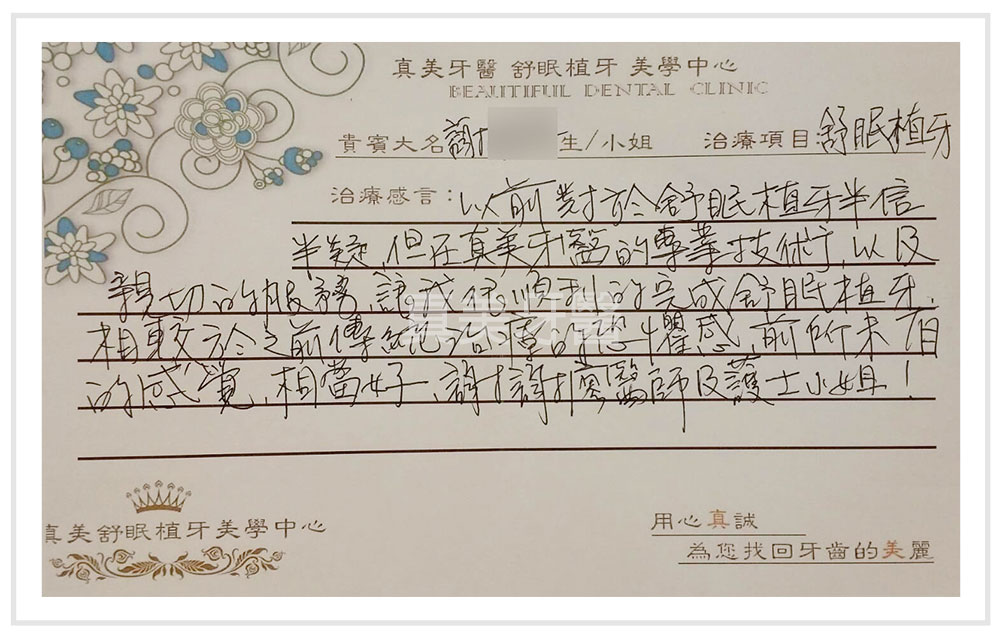 真美牙醫 舒眠植牙 美學中心
BEAUTIFUL DENTAL CLINIC
貴賓大名 謝 生/小姐 治療項目 舒眠植牙
治療感言：以前對於舒眠植牙半信
半疑，但在真美牙醫的專業技術，以及
親切的服務，讓我很順利的完成舒眠植牙，
相較於之前傳統治療的恐懼感，前所未有
的感覺，相當好，謝謝 醫師及護士小姐！
真美牙醫
真美舒眠植牙美學中心
用心真誠
為您找回牙齒的美麗